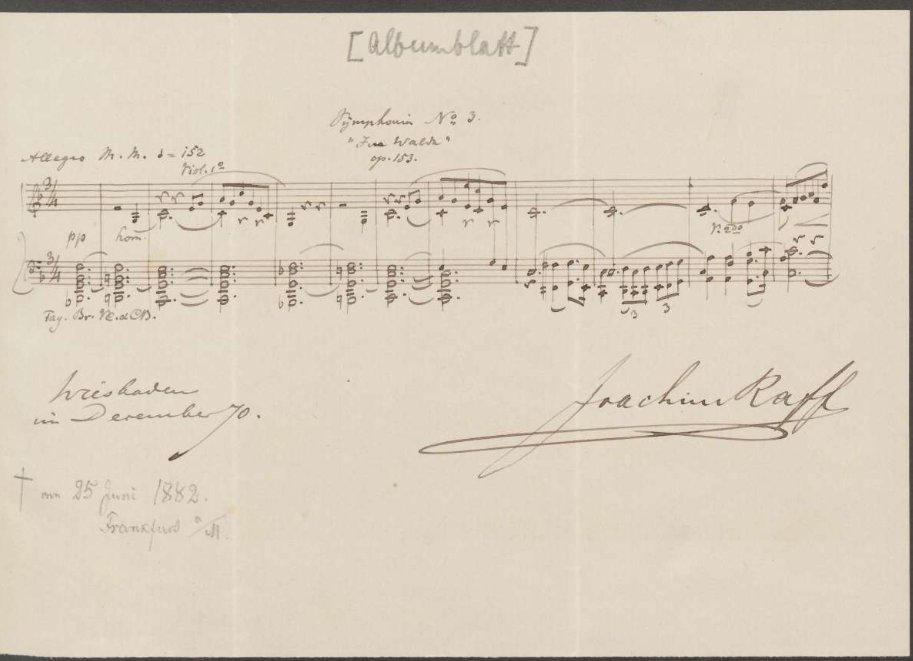 [Albumblatt]
Symphonie No 3.
"Im Walde"
op. 153.
Allegro M. M. = 152
Viol. 1o
3/4
pp horn
V. 2do
3/4
3 3
Fag. Br. Vc. & CB.
Wiesbaden
im December 70.
Joachim Raff
† am 25 Juni 1882.
Frankfurt a/M.